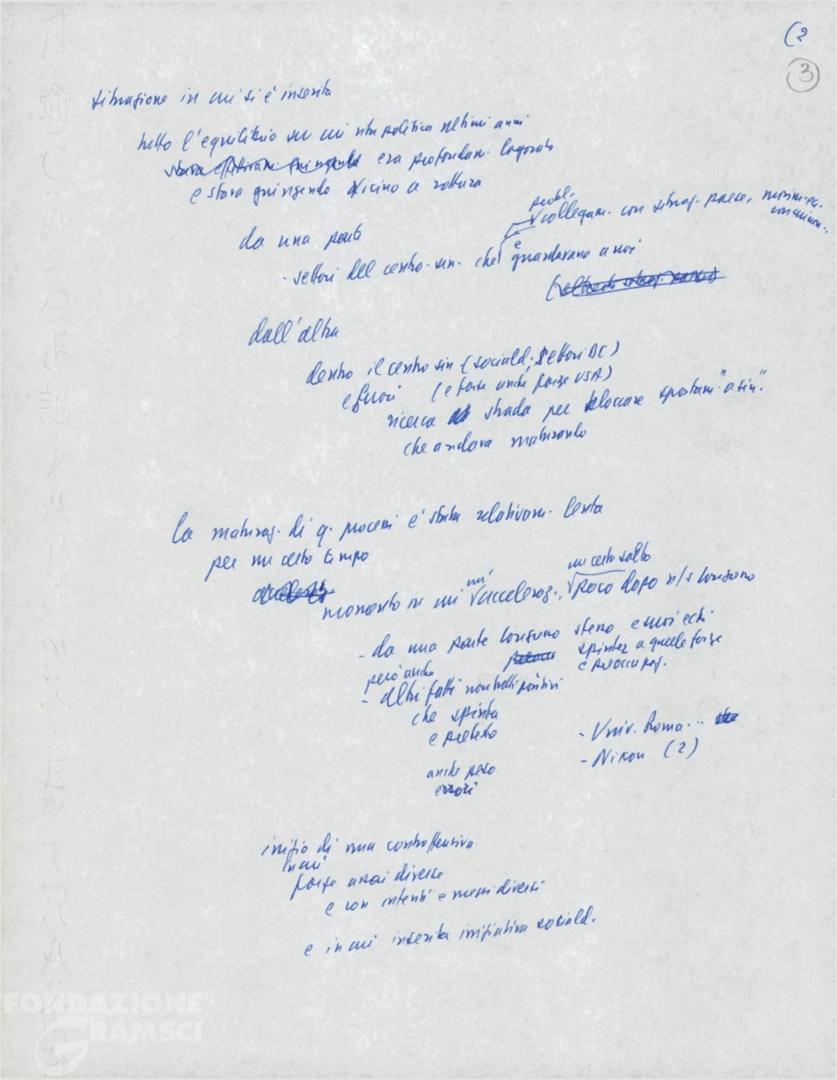 (2
3
situazione in cui si è inserita
tutto l'equilibrio su cui vita politica ultimi anni
era profondam. logorato
e stava giungendo vicino a rottura
probl.
collegam. con situaz. paese, movim.
da una parte
è
- settori del centro-sin. che guardavano a noi
dall'altra
dentro il centro sin (sociald., settori DC)
e fuori (e forse anche forze USA)
ricerca strada per bloccare spostam. "a sin".
che andava maturando
la maturaz. di q. processi è stata relativam. lenta
per un certo tempo
un certo salto
un'
momento in cui acceleraz., poco dopo n/s Congresso
- da una parte Congresso stesso e suoi echi
spinta a quelle forze
e preoccupaz.
però anche
- altri fatti non tutti positivi
che spinta
e pretesto
- Univ. Roma..
- Nixon (2)
anche però
errori
inizio di una controffensiva
in cui
forze assai diverse
e con intenti e mezzi diversi
e in cui inserita iniziativa sociald.
FONDAZIONE
GRAMSCI